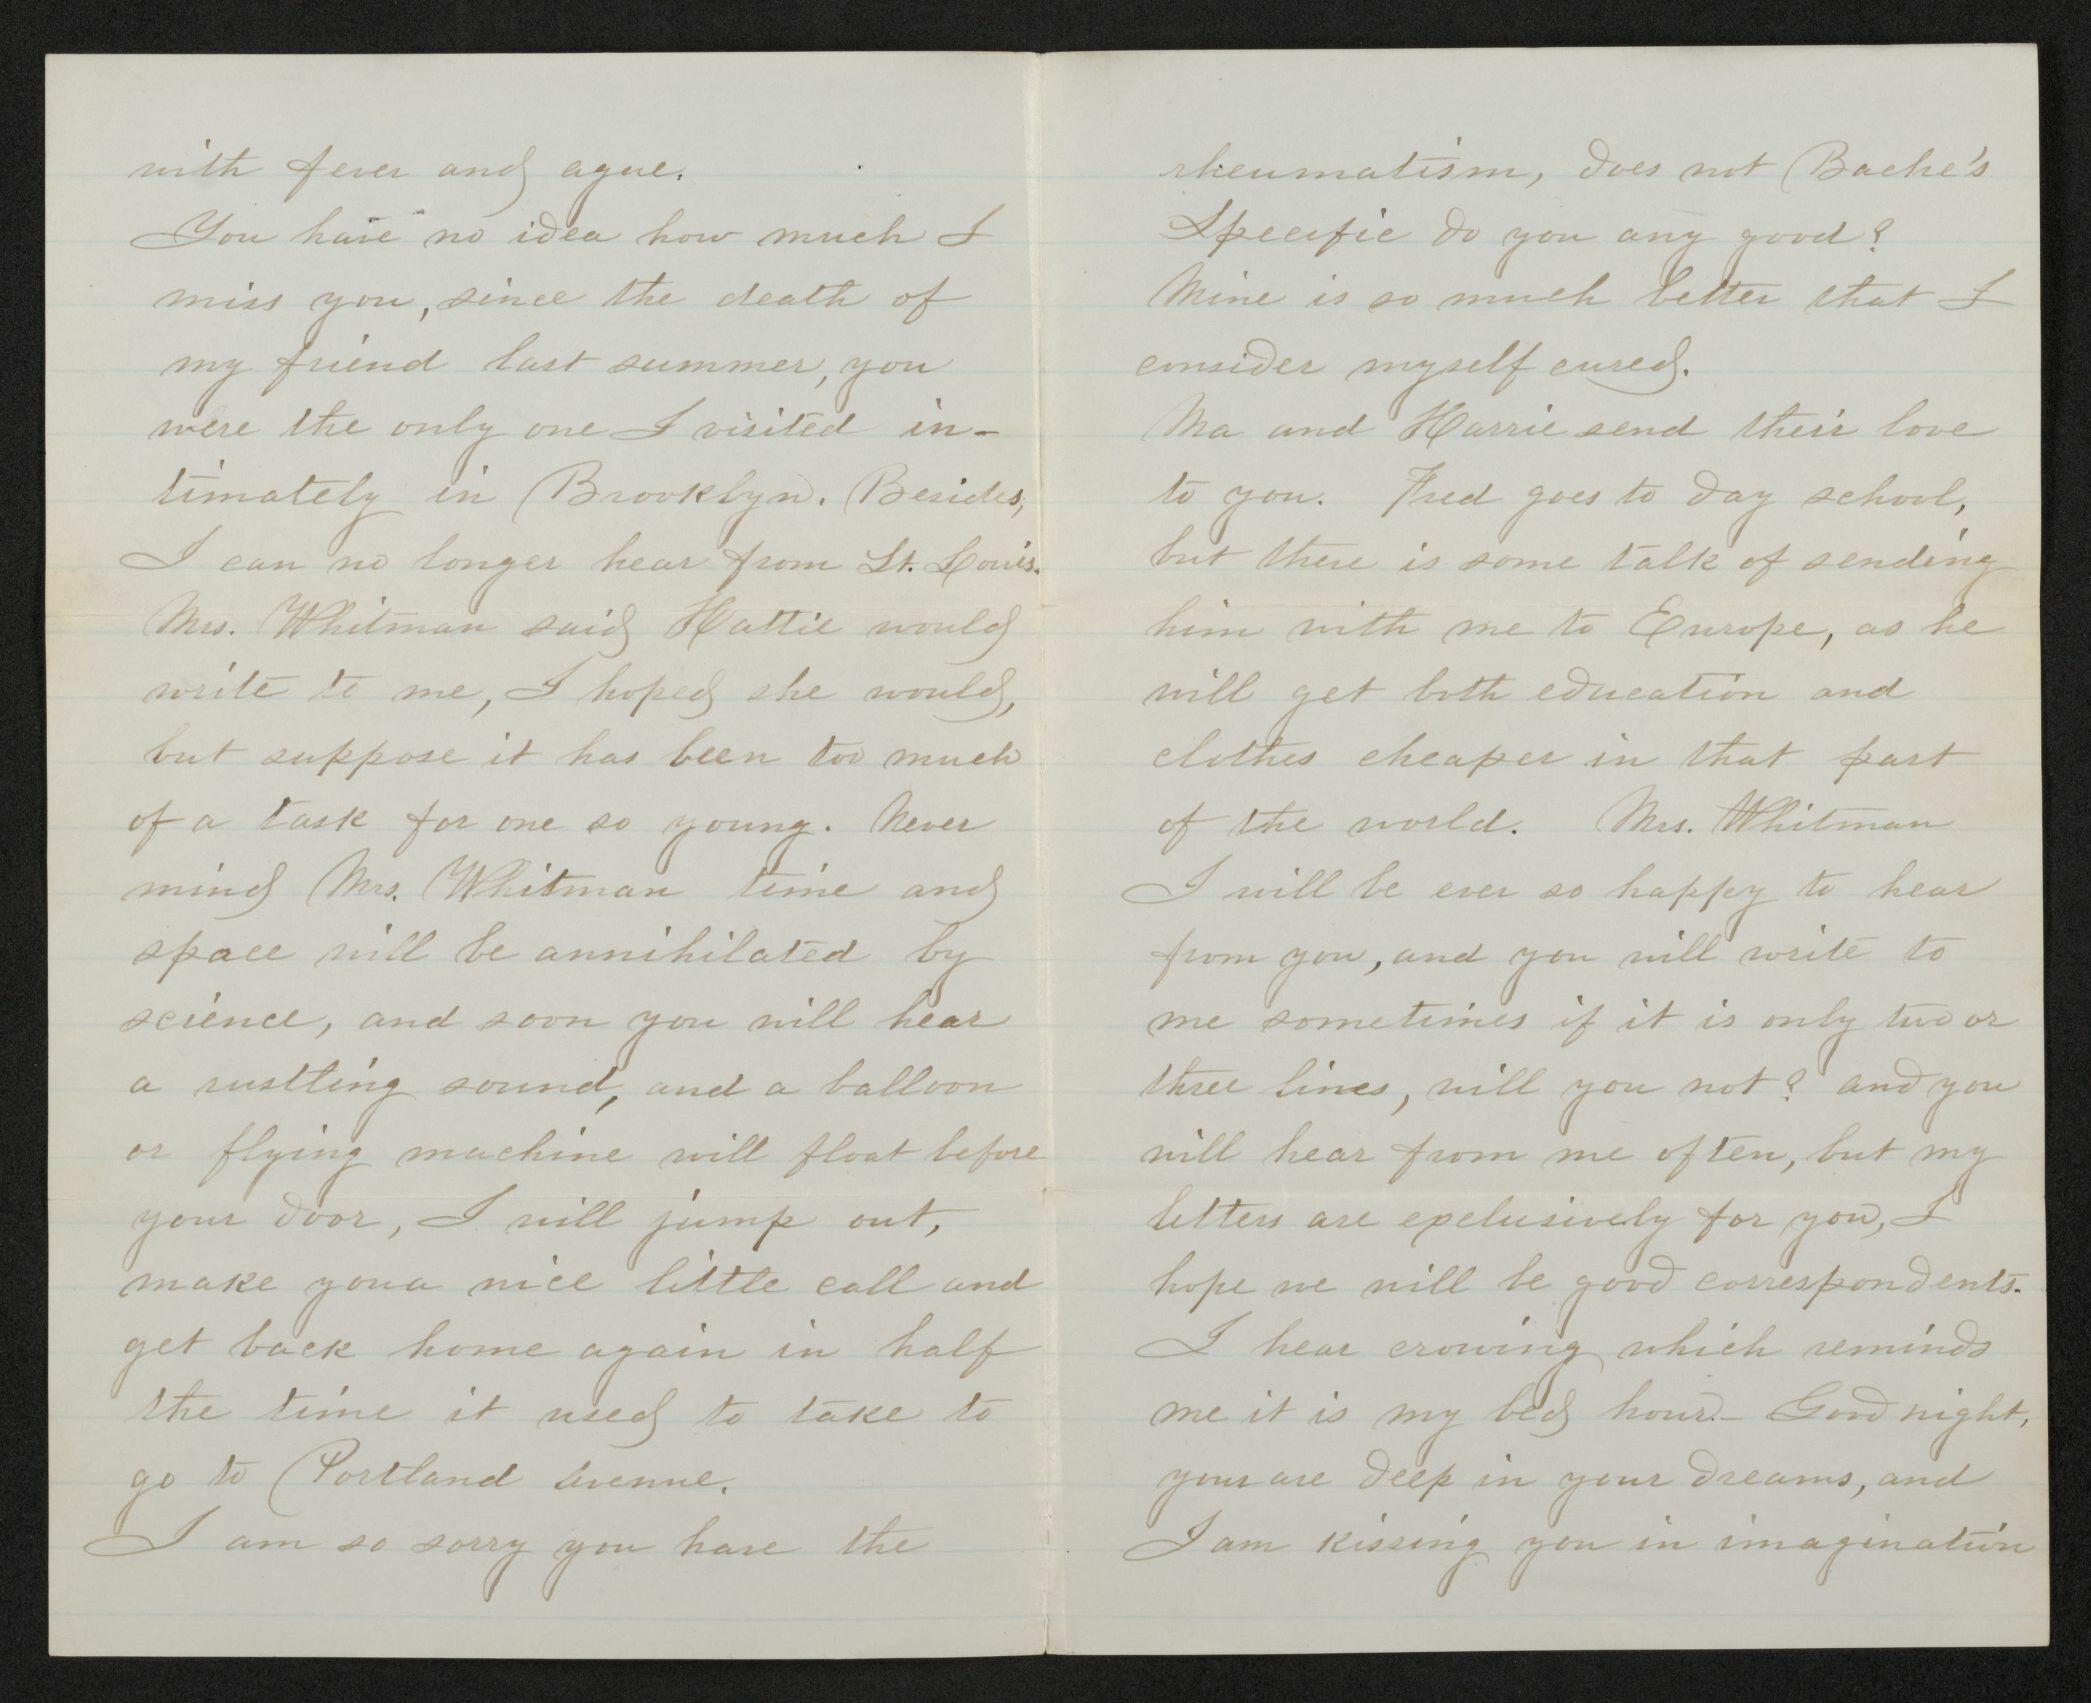 with fever and ague.
You have no idea how much I
miss you, since the death of
my friend last summer, you
were the only one I visited in-
timately in Brooklyn. Besides,
I can no longer hear from St. Louis.
Mrs. Whitman said Hattie would
write to me, I hoped she would,
but suppose it has been too much
of a task for one so young. Never
mind Mrs. Whitman time and
space will be annihilated by
science, and soon you will hear
a rustling sound, and a balloon
or flying machine will float before
your door, I will jump out,
make you a nice little call and
get back home again in half
the time it used to take to
go to Portland Avenue.
I am so sorry you have the
rheumatism, does not Bache's
Specific do you any good?
Mine is so much better that I
consider myself cured.
Ma and Harrie send their love
to you. Fred goes to day school,
but there is some talk of sending
him with me to Europe, as he
will get both education and
clothes cheaper in that part
of the world. Mrs. Whitman
I will be ever so happy to hear
from you, and you will write to
me sometimes if it is only two or
three lines, will you not? and you
will hear from me often, but my
letters are exclusively for you, I
hope we will be good correspondents.
I hear crowing which reminds
me it is my bed hour.— Good night,
your are deep in your dreams, and
I am kissing you in imagination